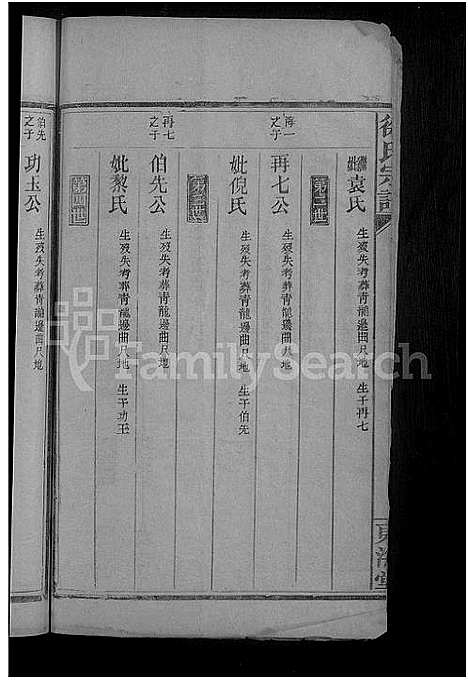 徐氏宗譜
東海堂
繼妣袁氏 生歿失考葬青龍邊曲尺地 生子再七
第二世
海一之子
再七公 生歿失考葬青龍邊曲尺地
妣倪氏 生歿失考葬青龍邊曲尺地 生子伯先
第三世
再七之子
伯先公 生歿失考葬青龍邊曲尺地
妣黎氏 生歿失考葬青龍邊曲尺地 生子功玉
第四世
伯先之子
功玉公 生歿失考葬青龍邊曲尺地
FamilySearch